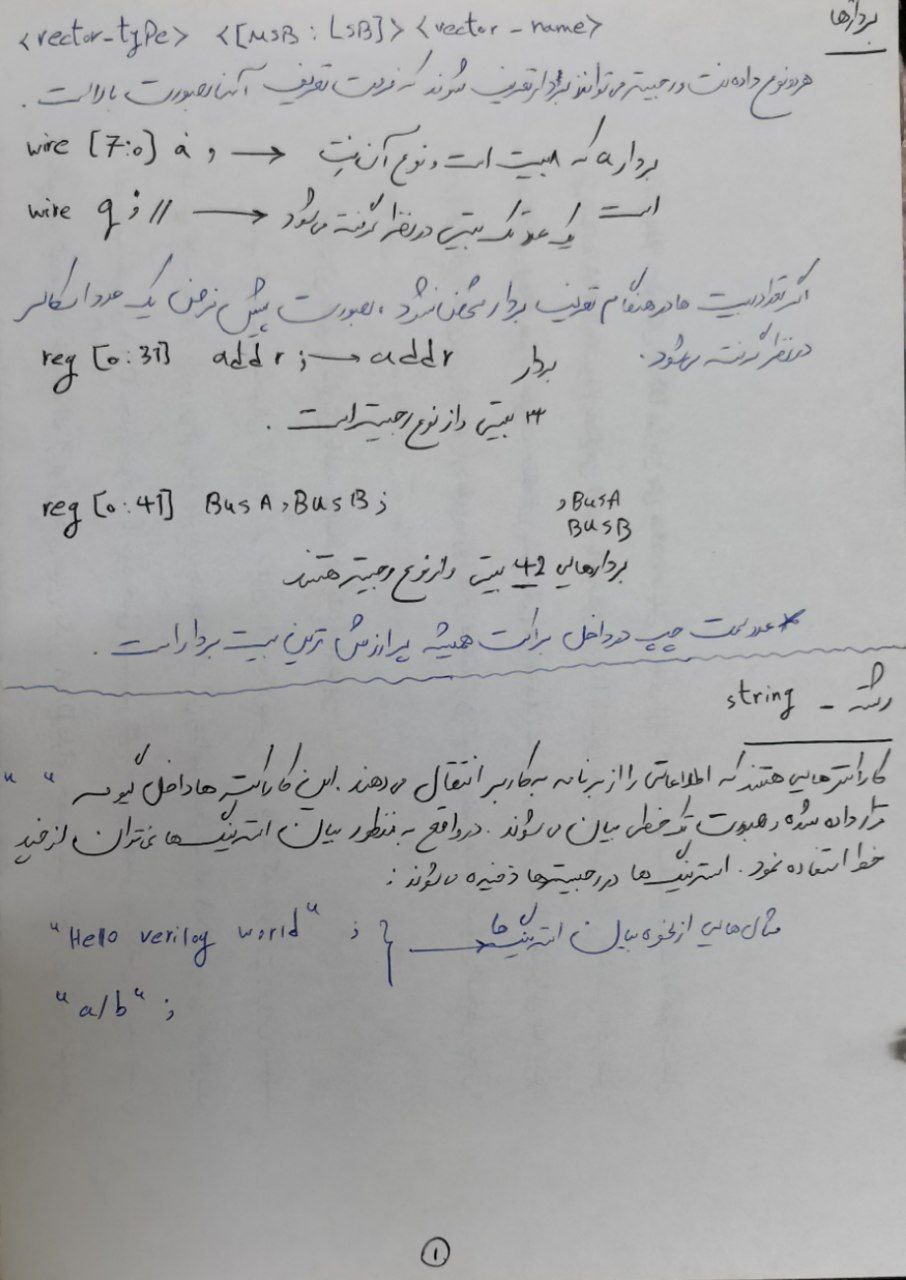 بردارها
<vector-type> <[MSB : LSB]> <vector-name>
هر دو نوع داده نت و رجیستر می‌توانند بردار تعریف شوند که فرمت تعریف آنها بصورت بالا است.
wire [7:0] a ; → بردار a که ۸ بیت است و نوع آن نت
است
wire q ; // → یک عدد تک بیتی در نظر گرفته می‌شود
اگر تعداد بیت ها در هنگام تعریف بردار مشخص نشود، بصورت پیش فرض یک عدد اسکالر
در نظر گرفته می‌شود.
reg [0:31] addr ; → addr بردار
۳۲ بیتی و از نوع رجیستر است.
reg [0:41] BusA , BusB ;
, BusA
BUSB
بردارهایی 42 بیتی و از نوع رجیستر هستند
* عدد سمت چپ در داخل براکت همیشه پر ارزش ترین بیت بردار است.
رشته - string
کاراکترهایی هستند که اطلاعاتی را از برنامه به کاربر انتقال می‌دهند. این کاراکتر ها داخل گیومه " "
قرار داده شده و بصورت تک خطی بیان می‌شوند. در واقع به منظور بیان استرینگ‌ها نمی‌توان از چند
خط استفاده نمود. استرینگ‌ها در رجیسترها ذخیره می‌شوند:
"Hello verilog world" ; } → مثال‌هایی از نحوه بیان استرینگ‌ها
"a/b" ;
۱